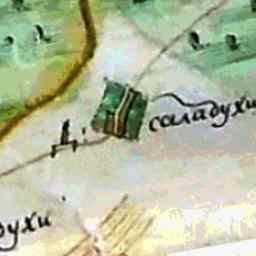 Д: саладухи
духи